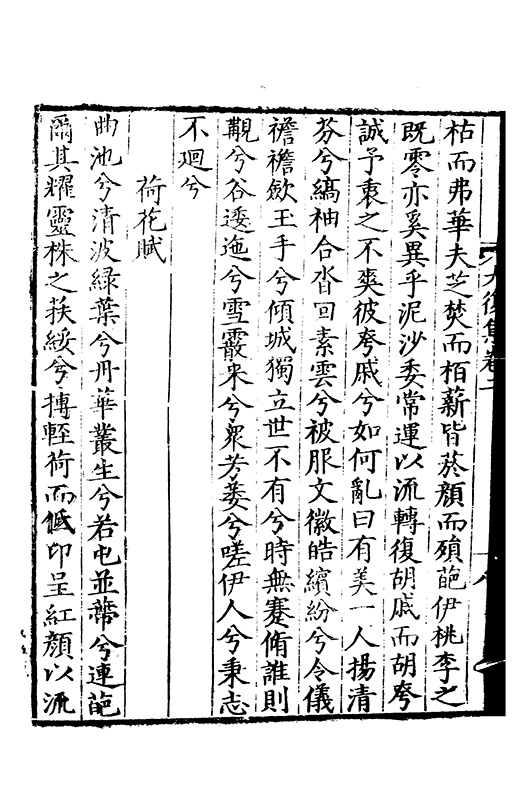 枯而弗華夫芝焚而栢薪皆菸顔而殞葩伊桃李之
既零亦奚異乎泥沙委常運以流轉復胡戚而胡夸
誠予衷之不爽彼夸戚兮如何亂曰有美一人揚清
芬兮縞袖合沓回素雲兮被服文徽皓繽紛兮令儀
襜襜斂玉手兮傾城獨立世不有兮時無蹇脩誰則
覯兮谷逶迤兮雪霰来兮衆芳萎兮嗟伊人兮秉志
不廻兮
荷花賦
曲池兮清波緑葉兮丹華叢生兮若屯並蔕兮連葩
爾其耀靈株之扶綏兮摶輕荷而低印呈紅顔以流
大復集卷二